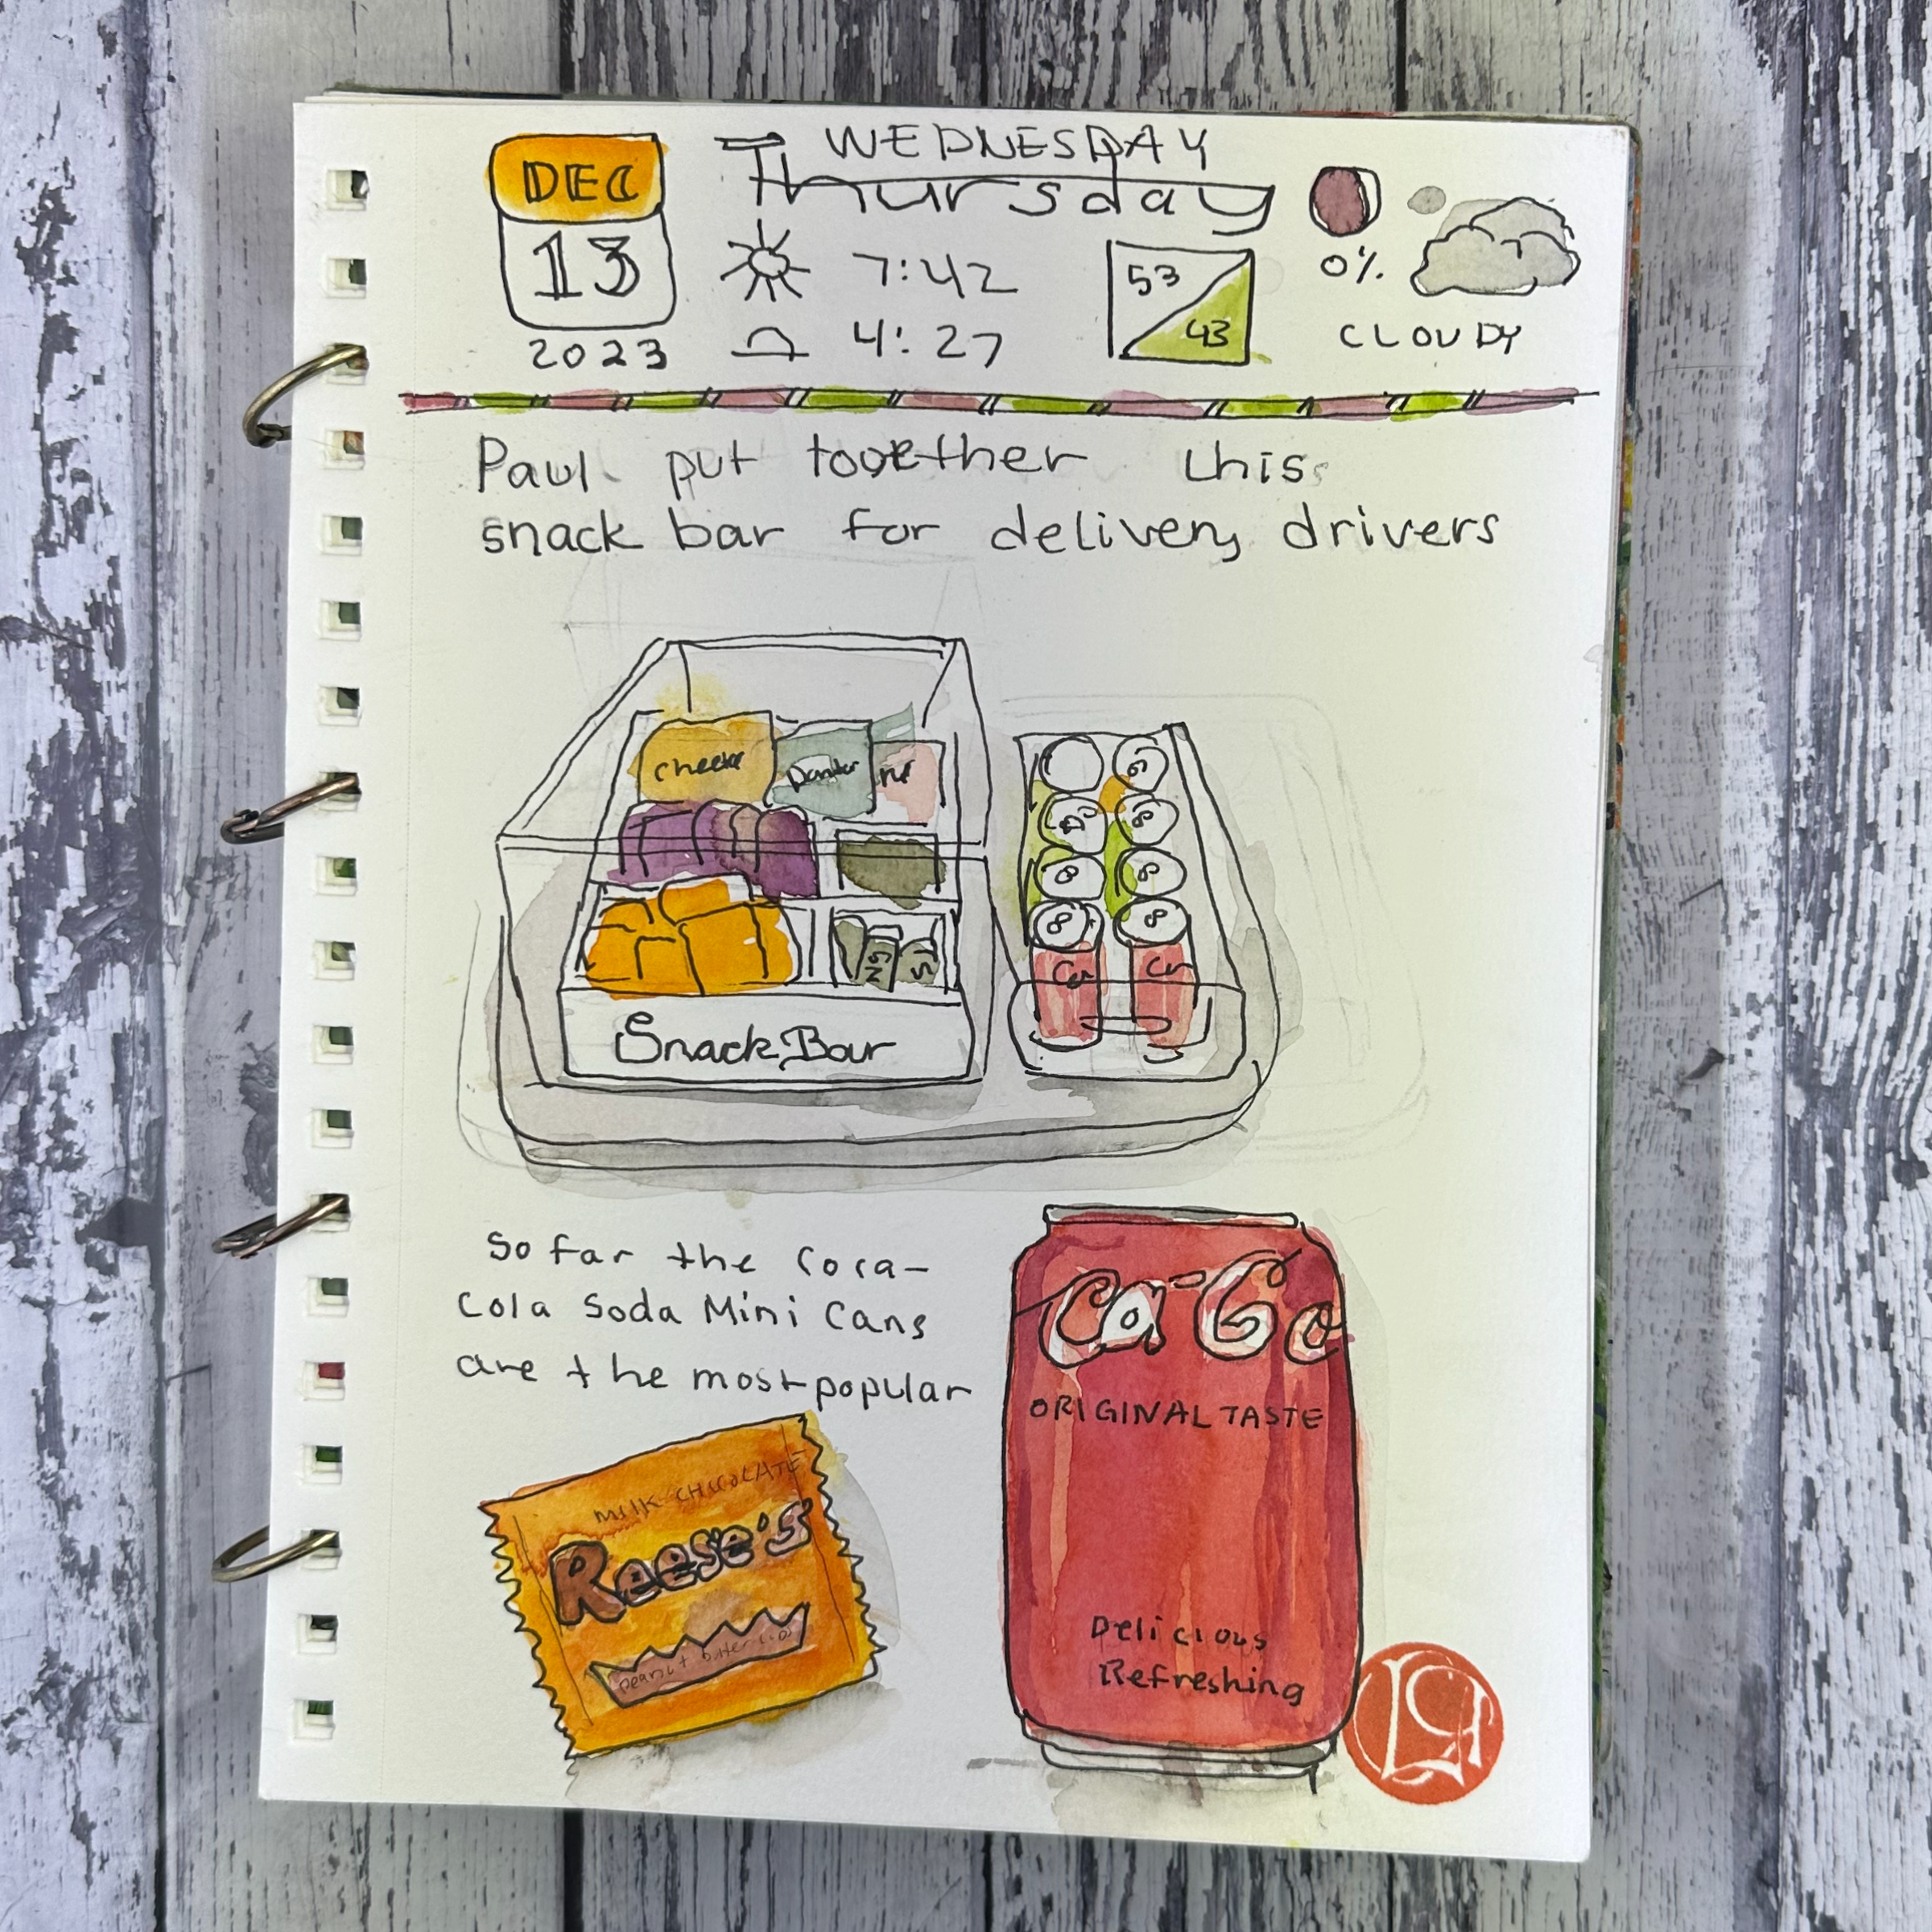 DEC
13
2023
WEDNESDAY
Thursday
7:42
4:27
53
43
0%
CLOUDY
Paul put together this
snack bar for delivery drivers
Snack Bar
So far the Coca-
Cola Soda Mini Cans
are the most popular
Ca-Co
ORIGINAL TASTE
Delicious
Refreshing
MILK CHOCOLATE
Reese's
peanut butter cups